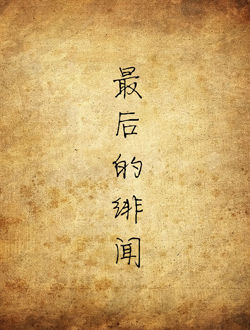 最后的绯闻